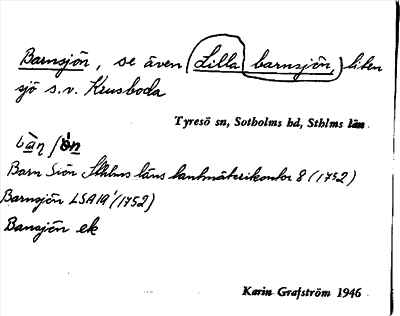 Barnsjön, se även Lilla barnsjön, liten
sjö s.v. Krusboda
Tyresö sn, Sotholms hd, Sthlms län
Barn Siön Sthlms läns lantmäterikontor 8 (1752)
Barnsjön LSA 19¹ (1752)
Bansjön ek
Karin Grafström 1946